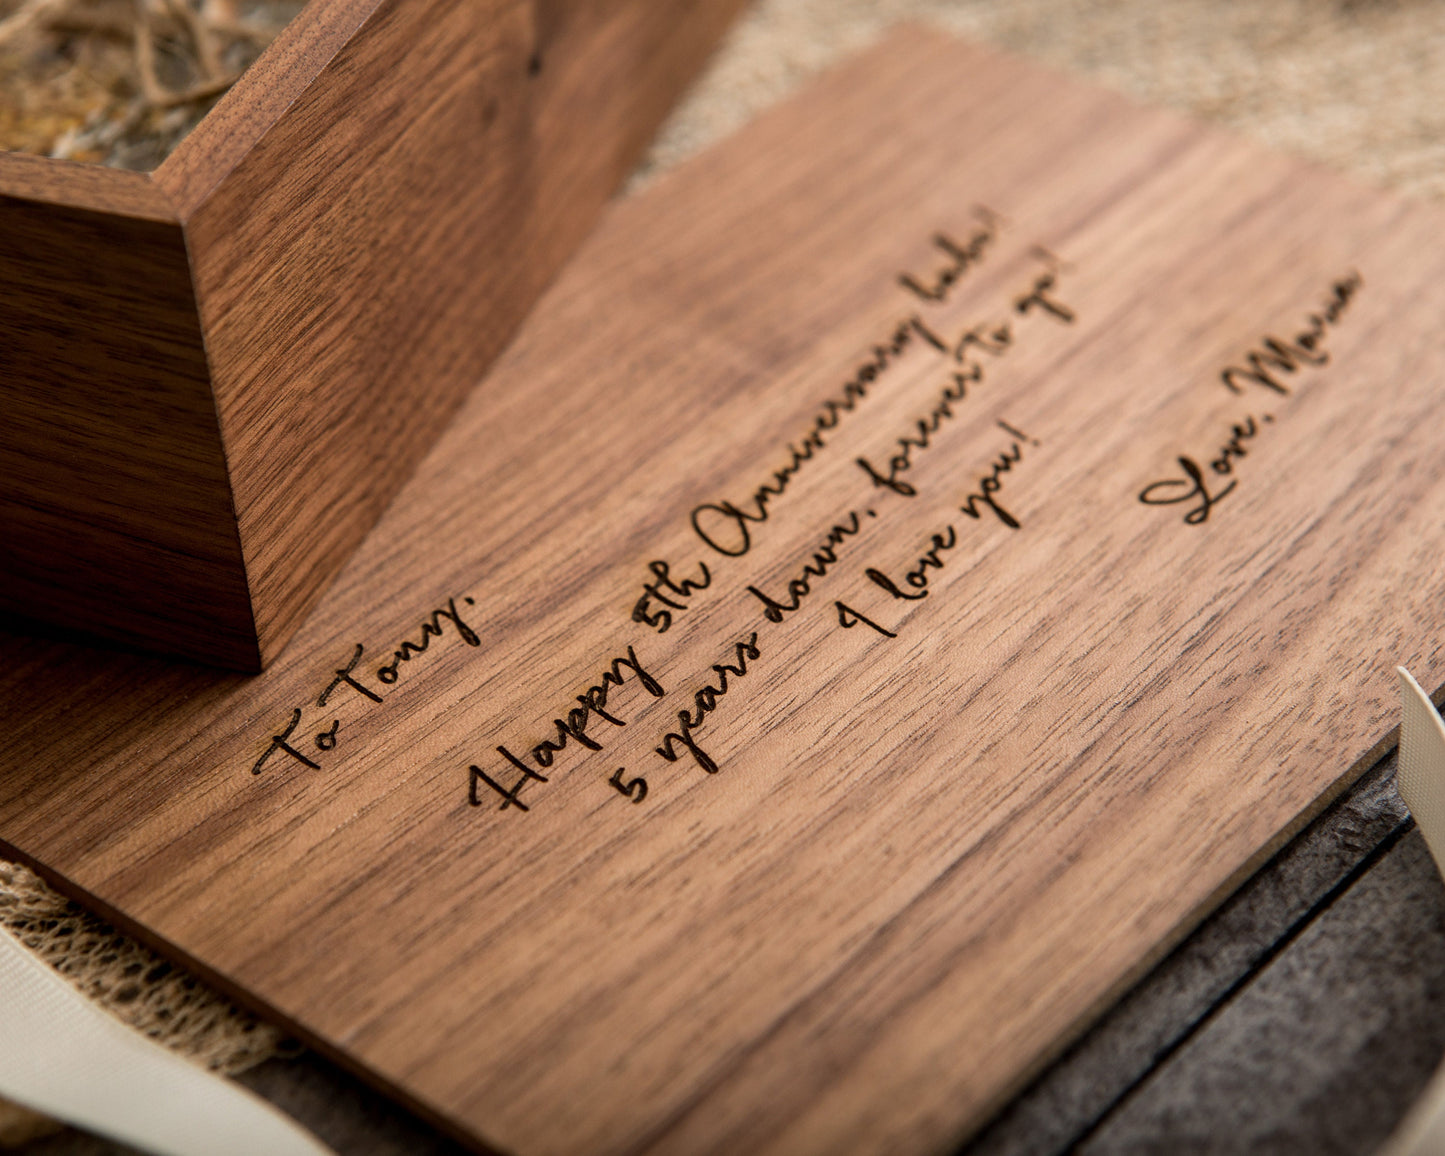 To Tony,
Happy 5th Anniversary babe!
5 years down, forever to go!
I love you!
Love, Maria